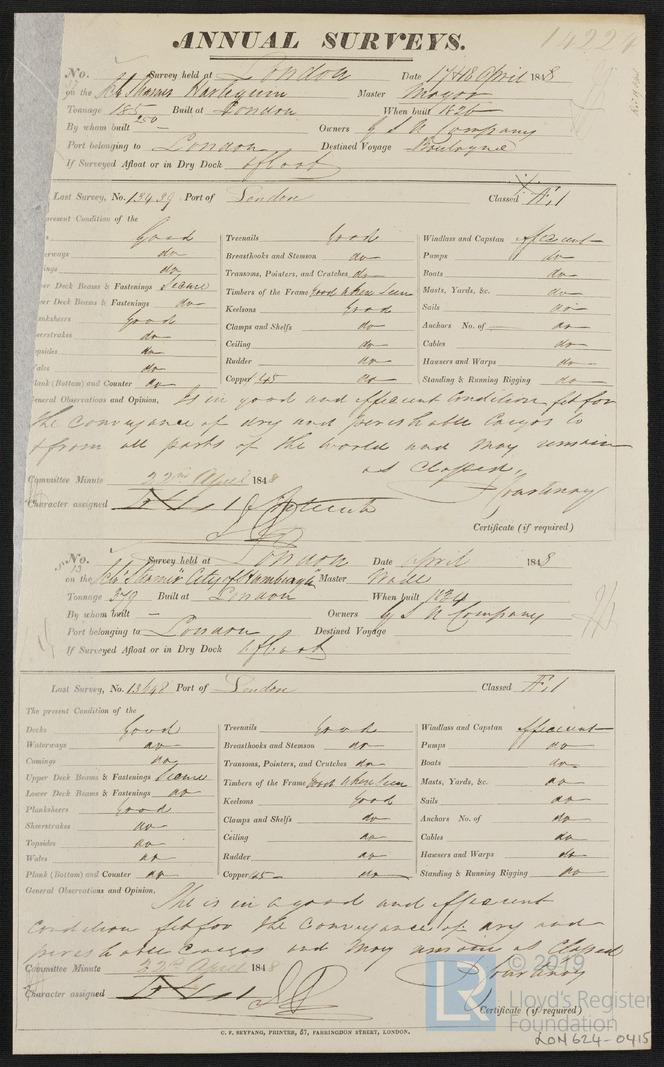 ANNUAL SURVEYS.
14224
No. Survey held at London Date 17th 18 April 1848
on the Schr Steamer Harlequin Master Mayor
Tonnage 185 Built at London When built 1826
250
By whom built — Owners G S N Company
Port belonging to London Destined Voyage Boulogne
If Surveyed Afloat or in Dry Dock afloat
Last Survey, No. 13439 Port of London Classed Æ 1
present Condition of the
Good Treenails Good Windlass and Capstan efficient
erways do Breasthooks and Stemson do Pumps do
ings do Transoms, Pointers, and Crutches do Boats do
er Deck Beams & Fastenings Secure Timbers of the Frame Good when seen Masts, Yards, &c. do
er Deck Beams & Fastenings do Keelsons Good Sails do
anksheers Good Clamps and Shelfs do Anchors No. of do
eerstrakes do Ceiling do Cables do
opsides do Rudder do Hawsers and Warps do
ales do Copper /45 do Standing & Running Rigging do
lank (Bottom) and Counter do
eneral Observations and Opinion, Is in good and efficient condition fit for
the conveyance of dry and perishable Cargos to
& from all parts of the World and may remain
as Classed,
Committee Minute 22nd April 1848
Character assigned
Certificate (if required)
No. 13 Survey held at London Date April 1848
on the Schr Steamer "City of Hamburgh" Master Wade
Tonnage 379 Built at London When built 1834
By whom built — Owners G S N Company
Port belonging to London Destined Voyage
If Surveyed Afloat or in Dry Dock afloat
Last Survey, No. 13648 Port of London Classed Æ 1
The present Condition of the
Decks Good Treenails Good Windlass and Capstan efficient
Waterways do Breasthooks and Stemson do Pumps do
Comings do Transoms, Pointers, and Crutches do Boats do
Upper Deck Beams & Fastenings Secure Timbers of the Frame Good when seen Masts, Yards, &c. do
Lower Deck Beams & Fastenings do Keelsons Good Sails do
Planksheers Good Clamps and Shelfs do Anchors No. of do
Sheerstrakes do Ceiling do Cables do
Topsides do Rudder do Hawsers and Warps do
Wales do Copper /45 do Standing & Running Rigging do
Plank (Bottom) and Counter do
General Observations and Opinion, She is in a good and efficient
condition fit for the conveyance of dry and
perishable Cargos and may remain as Classed
Committee Minute 22nd April 1848
Character assigned
Certificate (if required)
LR © 2019
Lloyd's Register
Foundation
C. F. SEYFANG, PRINTER, 57, FARRINGDON STREET, LONDON.
LON624-0415